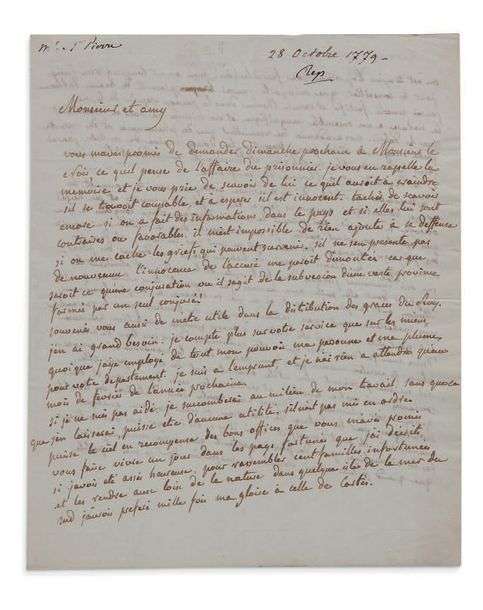 Mr. St Pierre
28 Octobre 1779
Rep
Monsieur et amy
vous m'avez promis de demander dimanche prochain à Monsieur le
Noir ce qu'il pense de l'affaire du prisonnier. je vous en rappelle la
memoire et je vous prie de scavoir de lui ce qu'il auroit a craindre
s'il se trouvoit coupable et a esperer s'il est innocent. tachés de scavoir
encore si on a fait des informations dans le pays et si elles lui sont
contraires ou favorables. il m'est impossible de rien ajouter à sa deffence
si on me cache les griefs qui peuvent survenir. s'il ne s'en presente pas
de nouveaux l'innocence de l'accusé me paroit démontrée car que
seroit ce qu'une conjuration ou il s'agit de la subversion d'une vaste province
formée par un seul conjuré!
souvenés vous aussi de m'etre utile dans la distribution des graces du Roy.
j'en ai grand besoin. je compte plus sur votre service que sur les miens
quoi que j'aye employé de tout mon pouvoir ma personne et ma plume
pour votre departement. je suis a l'emprunt, et je n'ai rien a attendre qu'au
mois de fevrier de l'année prochaine.
si je ne suis pas aidé je succomberai au milieu de mon travail sans que ce
que j'en laisserai puisse etre d'aucune utilité, s'il n'est pas mis en ordre.
puisse le ciel en recompense des bons offices que vous m'avés promis
vous faire vivre un jour dans les pays fortunés que j'ai décrits.
si j'avois eté assés heureux pour rassembler cent familles infortunées
et les rendre aux loix de la nature dans quelque isle de la mer du
sud j'aurois preferé mille fois ma gloire à celle de Cortès.